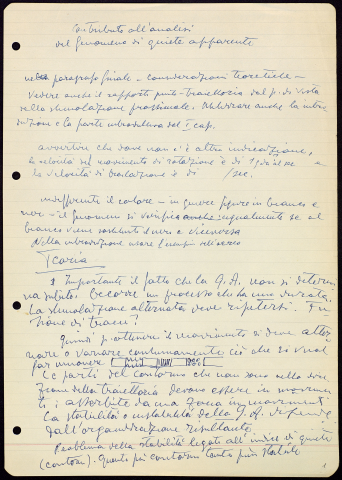 Contributo all'analisi
del fenomeno di quiete apparente
nel paragrafo finale - considerazioni teoretiche -
vedere anche il rapporto punto-traiettoria dal p. di vista
della stimolazione prossimale. Utilizzare anche la intro
duzione e la parte introduttiva del I cap.
avvertire che dove non c'è altra indicazione,
la velocità del movimento di rotazione è di 1 g. al sec e
la velocità di traslazione è di /sec.
indifferente il colore - in genere figure in bianco e
nero - il fenomeno si verifica anche ugualmente se al
bianco viene sostituito il nero e viceversa
Nella introduzione usare l'esempio dell'aereo
Teoria
È importante il fatto che la Q.A. non si determi
na subito: occorre un processo che ha una durata.
La stimolazione alternata deve ripetersi. Fun
zione di tracce?
Quindi p. ottenere il movimento si deve alter
nare o variare continuamente ciò che si vuol
far muovere
Le parti del contorno che non sono nella dire
zione della traiettoria devono essere in movimen
to; assorbite da una zona in movimento
La stabilità o instabilità della Q.A. dipende
dall'organizzazione risultante.
Problema della stabilità legato all'indice di quiete
(contorni). Quanto più contorni tanto più stabile
1